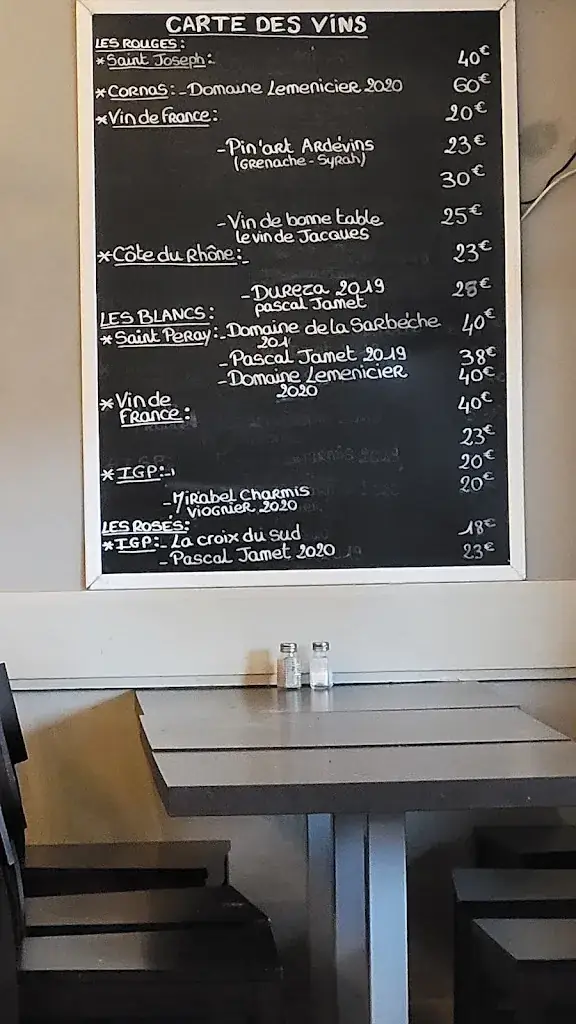 CARTE DES VINS
LES ROUGES:
*Saint Joseph: 40€
*CORNAS:-Domaine Lemenicier 2020 60€
*Vin de France: 20€
-Pin'art Ardévins 23€
(GRENACHE-SYRAH)
30€
-Vin de bonne table 25€
le vin de Jacques
*Côte du Rhône:- 23€
-DUREZA 2019 25€
pascal Jamet
LES BLANCS:
*SAINT PERAY:-Domaine de la SARBÉCHE 40€
201
-Pascal Jamet 2019 38€
-Domaine Lemenicier 40€
2020
*Vin de 40€
FRANCE:
23€
20€
*IGP:- 20€
-MIRABEL CHARMIS
VIOGNIER 2020
LES ROSES:
*IGP:-La croix du sud 18€
-Pascal Jamet 2020 23€